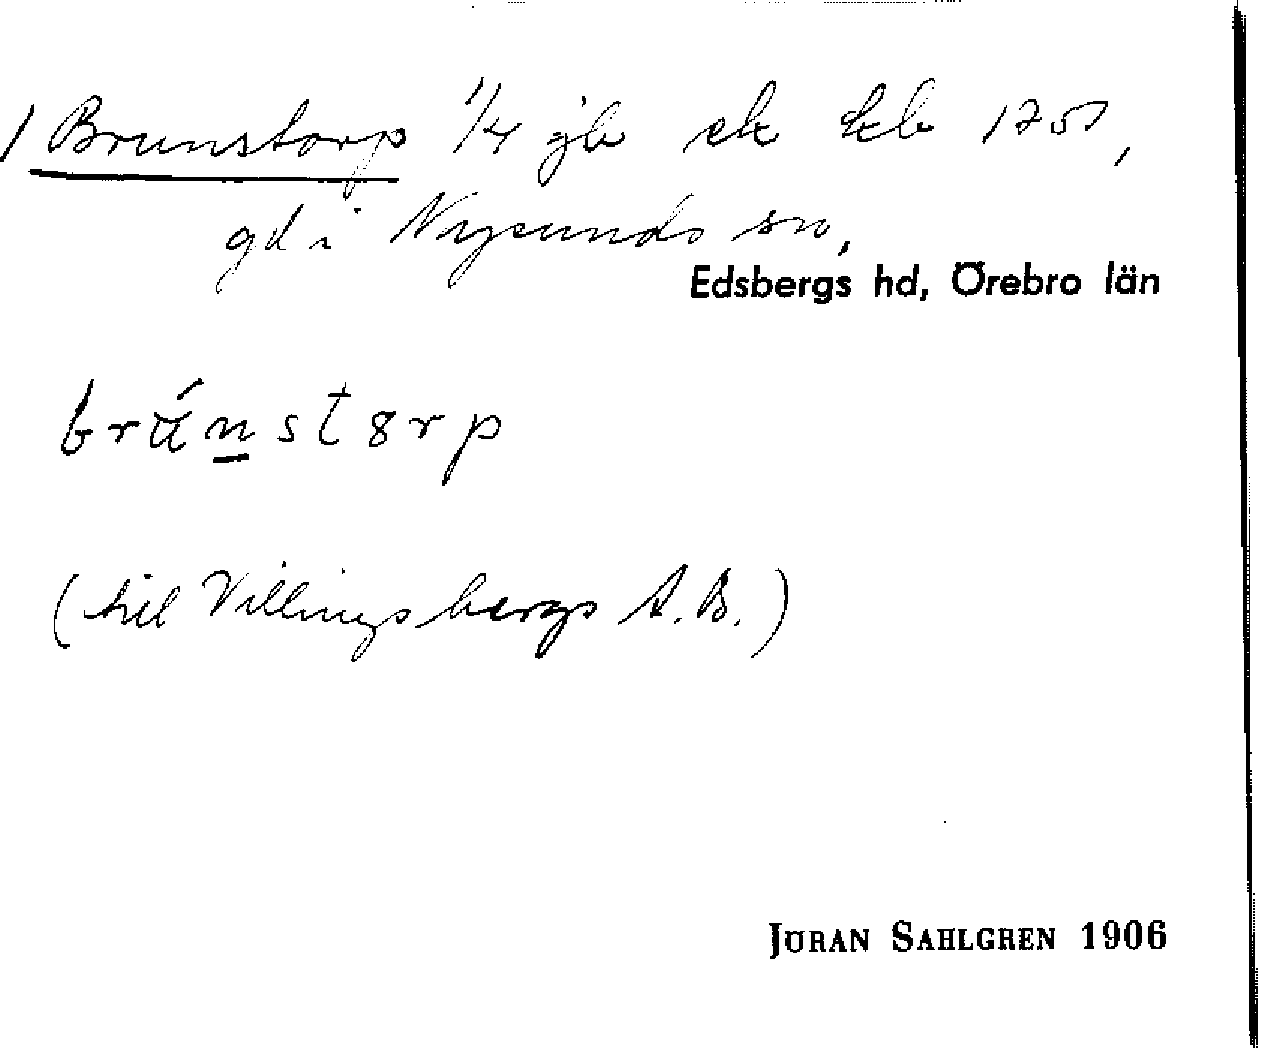 / Brunstorp 1/4 gb sk kb 1751,
gd i Nysunds sn,
Edsbergs hd, Örebro län
brʉ́n̲stɵrp
(till Villingsbergs A.B.)
JÖRAN SAHLGREN 1906